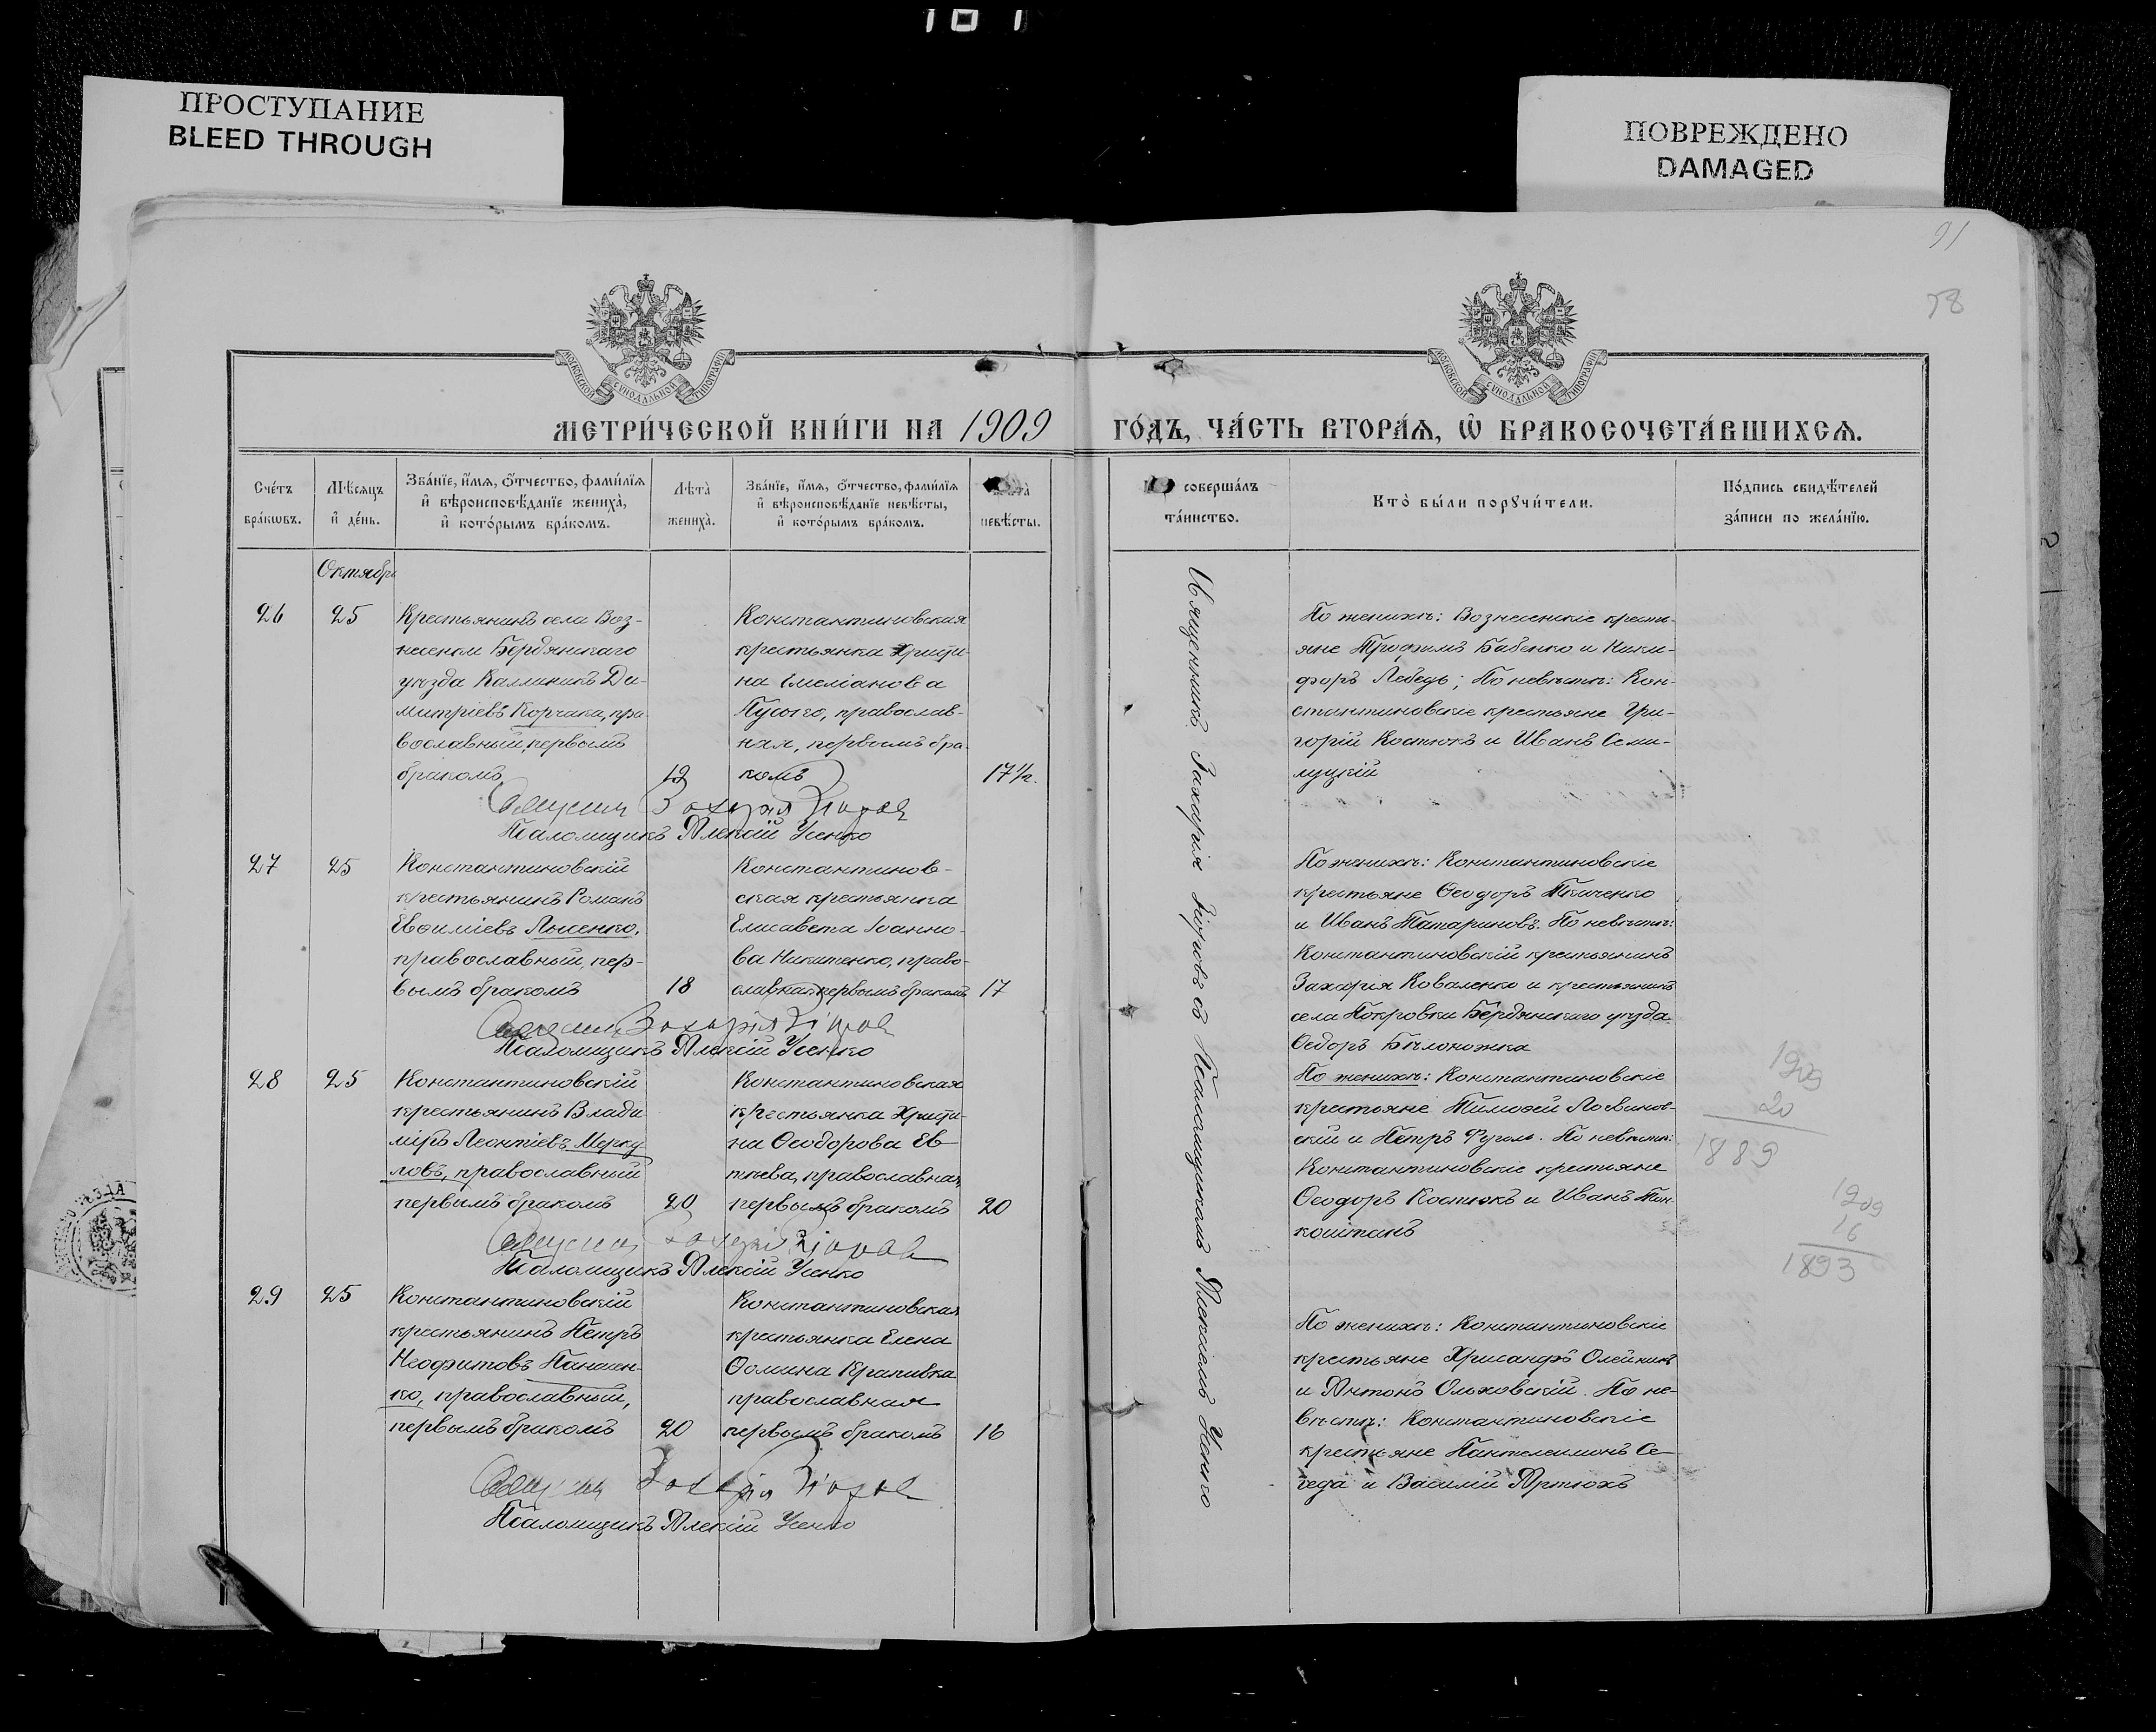 181
ПРОСТУПАНИЕ
BLEED THROUGH
ПОВРЕЖДЕНО
DAMAGED
91
58
МОСКОВСКОЙ СѴНОДАЛЬНОЙ ТИПОГРАФІИ
МОСКОВСКОЙ СѴНОДАЛЬНОЙ ТИПОГРАФІИ
МЕТРИ́ЧЕСКОЙ КНИ́ГИ НА 1909 ГО́ДЪ, ЧА́СТЬ ВТОРА́Ѧ, Ѽ БРАКОСОЧЕТА́ВШИХСѦ.
Сче́тъ бра́кѡвъ.
Мѣ́сѧцъ и҆ де́нь.
Зва́нїе, и҆́мѧ, ѻ҆́тчество, фами́лїѧ
и҆ вѣроисповѣ́данїе жениха̀,
и҆ кото́рымъ бра́комъ.
Лѣта̀
жениха̀.
Зва́нїе, и҆́мѧ, ѻ҆́тчество, фами́лїѧ
и҆ вѣроисповѣ́данїе невѣ́сты,
и҆ кото́рымъ бра́комъ.
невѣ́сты.
соверша́лъ
та́инство.
Кто̀ бы́ли порꙋчи́тели.
По́дпись свидѣ́телей
за́писи по жела́нїю.
Октябрь
26
25
Крестьянинъ села Воз-
несенки Бердянскаго
уѣзда Каллиникъ Ди-
митріевъ Корчака, пра-
вославный, первымъ
бракомъ
19
Константиновская
крестьянка Христи-
на Емеліанова
православ-
ная, первымъ бра-
комъ
17½.
По женихѣ: Вознесенскіе кресть-
яне Трофимъ Бабенко и Ники-
форъ Лебедь; По невѣстѣ: Кон-
стантиновскіе крестьяне Гри-
горій Костюкъ и Иванъ Семи-
луцкій
Священникъ Захарія
Псаломщикъ Алексій Усенко
27
25
Константиновскій
крестьянинъ Романъ
Евѳиміевъ Лысенко,
православный, пер-
вымъ бракомъ
18
Константинов-
ская крестьянка
Елисавета Іоанно-
ва Никитенко, право-
славная, первымъ бракомъ
17
По женихѣ: Константиновскіе
крестьяне Ѳеодоръ Ткаченко
и Иванъ Татариновъ. По невѣстѣ:
Константиновскій крестьянинъ
Захарія Коваленко и крестьянинъ
села Покровки Бердянскаго уѣзда
Ѳедоръ Бѣлоножка
Священникъ Захарія
Псаломщикъ Алексій Усенко
28
25
Константиновскій
крестьянинъ Влади-
міръ Леонтіевъ Мерку-
ловъ, православный
первымъ бракомъ
20
Константиновская
крестьянка Христи-
на Ѳеодорова Ев-
тѣева, православная,
первымъ бракомъ
20
По женихѣ: Константиновскіе
крестьяне Тимоѳей Логвинов-
скій и Петръ По невѣстѣ:
Константиновскіе крестьяне
Ѳеодоръ Костюкъ и Иванъ Тон-
коштанъ
1909
20
1889
1909
16
1893
Священникъ Захарія
Псаломщикъ Алексій Усенко
29
25
Константиновскій
крестьянинъ Петръ
Неофитовъ Панасен-
ко, православный,
первымъ бракомъ
20
Константиновская
крестьянка Елена
Ѳомина Крапивка
православная
первымъ бракомъ
16
По женихѣ: Константиновскіе
крестьяне Хрисанфъ Олейникъ
и Антонъ Ольховскій. По не-
вѣстѣ: Константиновскіе
крестьяне Пантелеимонъ Се-
геда и Василій Артюхъ
Священникъ Захарія
Псаломщикъ Алексій Усенко
Священникъ Захарія съ Псаломщикомъ Алексіемъ Усенко